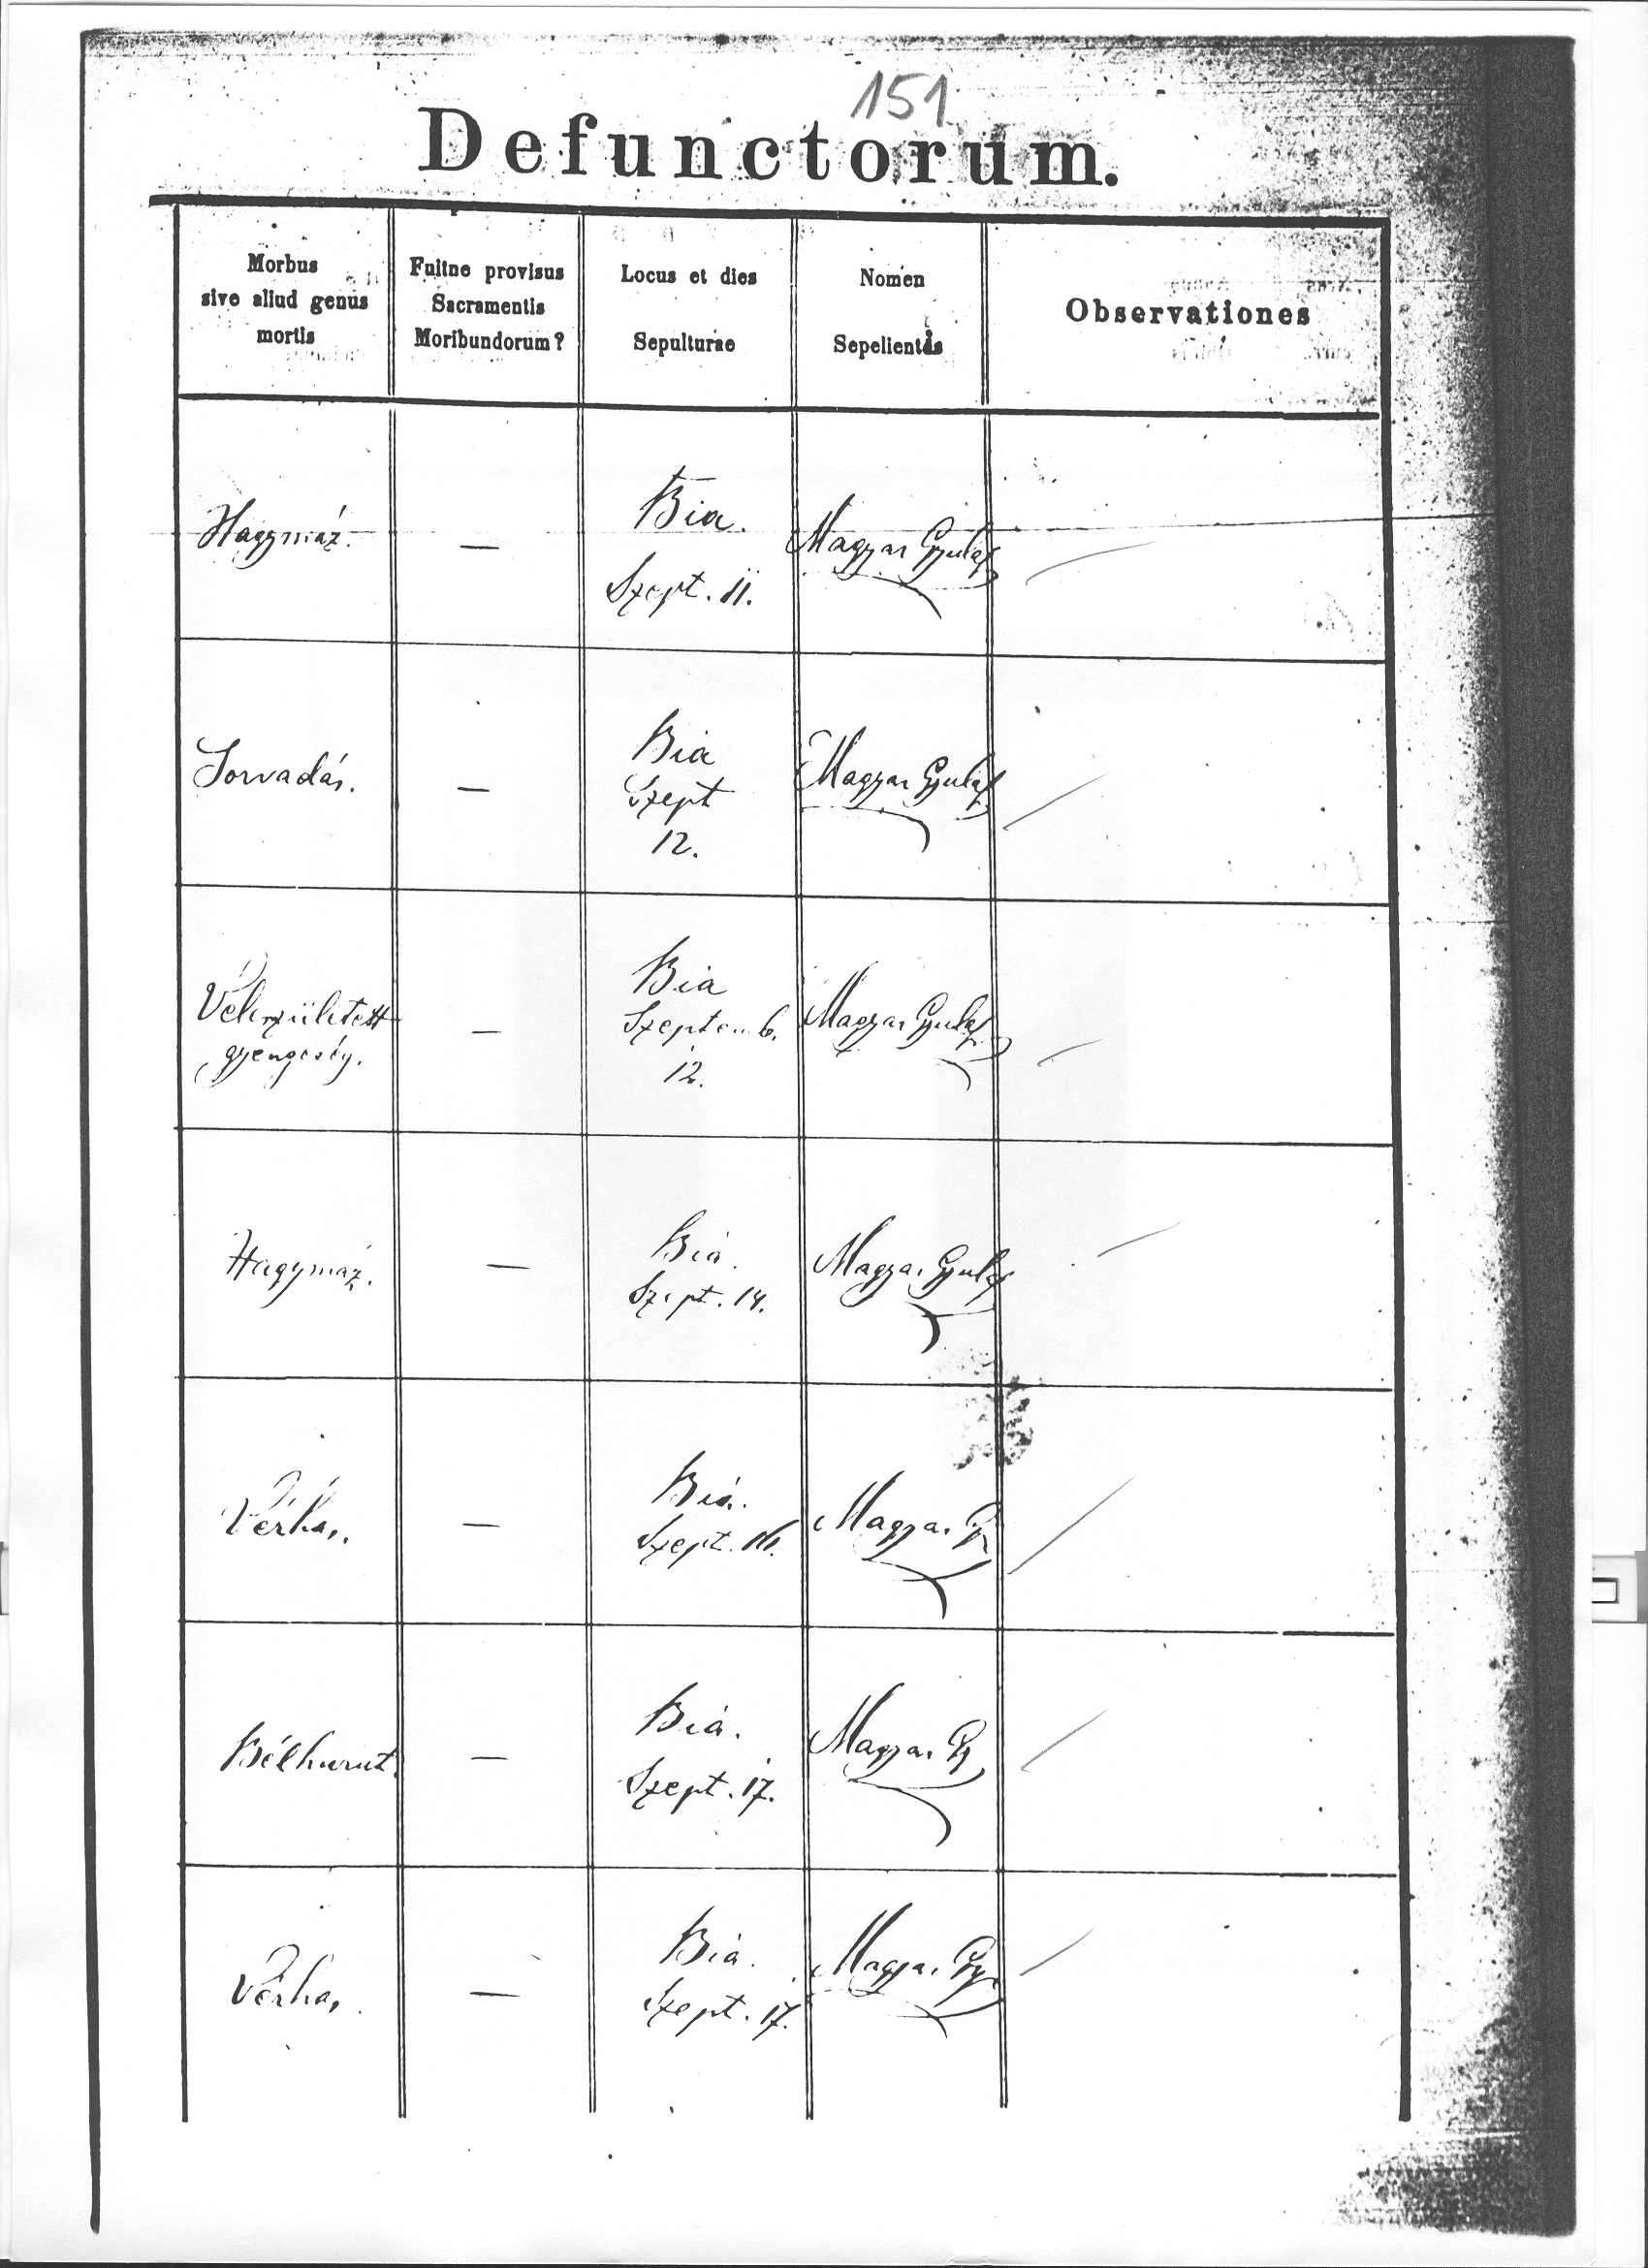 151
Defunctorum.
Morbus
sive aliud genus
mortis
Fuitne provisus
Sacramentis
Moribundorum?
Locus et dies
Sepulturae
Nomen
Sepelientis
Observationes
Hagymáz.
—
Bia.
Szept. 11.
Magyar Gyula
Sorvadás.
—
Bia
Szept
12.
Magyar Gyula
Velezületett
gyengeség.
—
Bia
Szeptemb.
12.
Magyar Gyula
Hagymáz.
—
Bia.
Szept. 14.
Magyar Gyula
Vérhas.
—
Bia.
Szept. 16.
Magyar Gy
Bélhurut.
—
Bia.
Szept. 17.
Magyar Gy
Vérhas.
—
Bia.
Szept. 17.
Magyar Gy